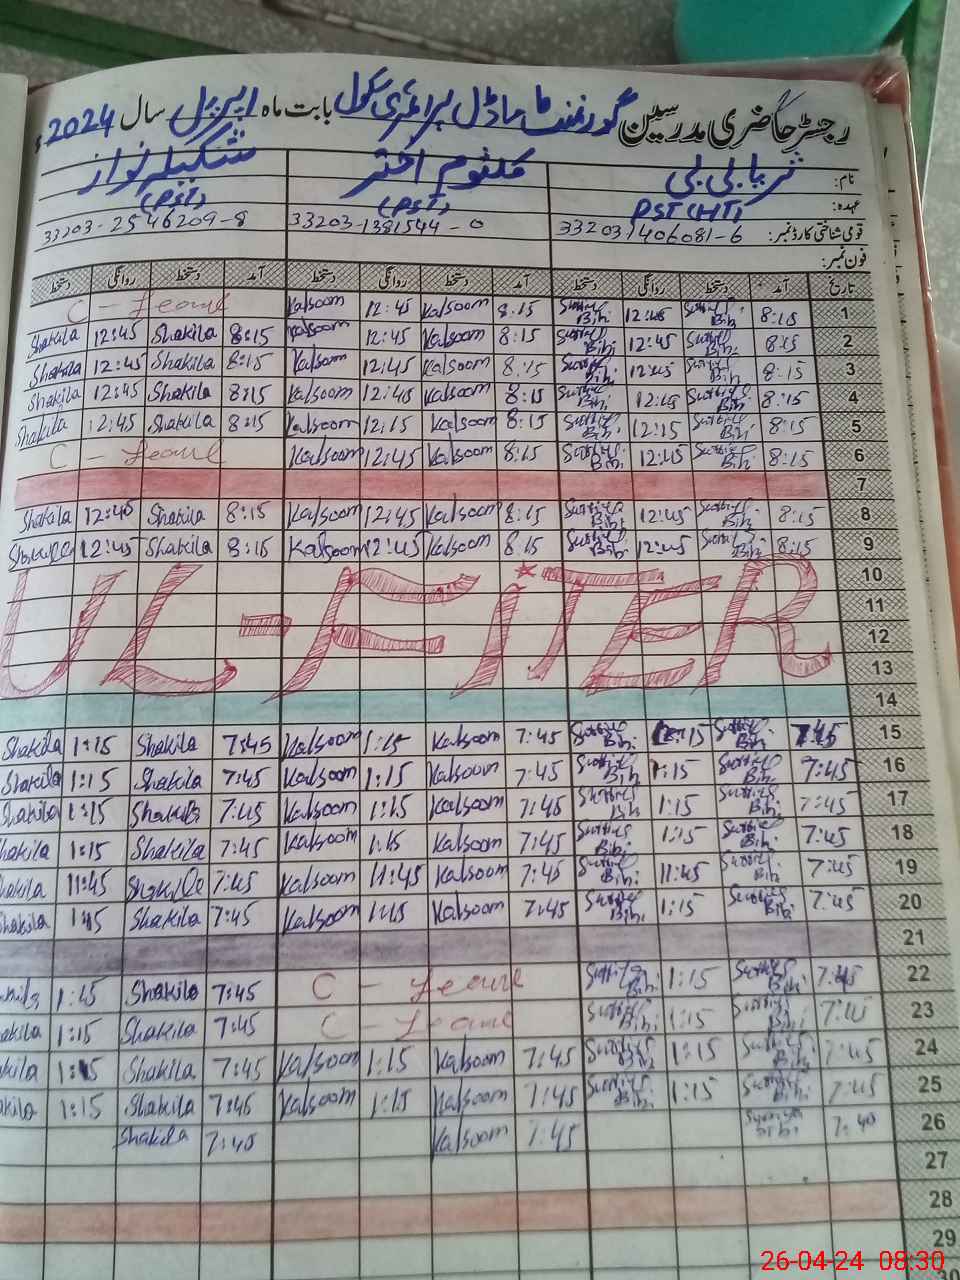 رجسٹر حاضری مدرسین گورنمنٹ ماڈل پرائمری سکول بابت ماہ اپریل سال 2024ء
نام: ثریا بی بی کلثوم اختر شکیلہ نواز
عہدہ: PST (HT) (PST) (PST)
قومی شناختی کارڈ نمبر: 332031406081-6 33203-1381544-0 33203-2546209-8
فون نمبر:
تاریخ آمد دستخط روانگی دستخط آمد دستخط روانگی دستخط آمد دستخط روانگی دستخط
1 8:15 Bibi 12:45 Bibi 8:15 Kalsoom 12:45 Kalsoom C - Leave
2 8:15 Bibi 12:45 Bibi 8:15 Kalsoom 12:45 Kalsoom 8:15 Shakila 12:45 Shakila
3 8:15 Bibi 12:45 Bibi 8:15 Kalsoom 12:45 Kalsoom 8:15 Shakila 12:45 Shakila
4 8:15 Bibi 12:45 Bibi 8:15 Kalsoom 12:45 Kalsoom 8:15 Shakila 12:45 Shakila
5 8:15 Bibi 12:15 Bibi 8:15 Kalsoom 12:15 Kalsoom 8:15 Shakila 12:45 Shakila
6 8:15 Bibi 12:45 Bibi 8:15 Kalsoom 12:45 Kalsoom C - Leave
7
8 8:15 Bibi 12:45 Bibi 8:15 Kalsoom 12:45 Kalsoom 8:15 Shakila 12:45 Shakila
9 8:15 Bibi 12:45 Bibi 8:15 Kalsoom 12:45 Kalsoom 8:15 Shakila 12:45 Shakila
10
11
UL-FITER
12
13
14
15 7:45 Bibi 1:15 Bibi 7:45 Kalsoom 1:15 Kalsoom 7:45 Shakila 1:15 Shakila
16 7:45 Bibi 1:15 Bibi 7:45 Kalsoom 1:15 Kalsoom 7:45 Shakila 1:15 Shakila
17 7:45 Bibi 1:15 Bibi 7:45 Kalsoom 1:15 Kalsoom 7:45 Shakila 1:15 Shakila
18 7:45 Bibi 1:15 Bibi 7:45 Kalsoom 1:15 Kalsoom 7:45 Shakila 1:15 hakila
19 7:45 Bibi 11:45 Bibi 7:45 Kalsoom 11:45 Kalsoom 7:45 Shakila 11:45 hakila
20 7:45 Bibi 1:15 Bibi 7:45 Kalsoom 1:15 Kalsoom 7:45 Shakila 1:15 hakila
21
22 7:45 Bibi 1:15 Bibi C - Leave 7:45 Shakila 1:15 kila
23 7:45 Bibi 1:15 Bibi C - Leave 7:45 Shakila 1:15 akila
24 7:45 Bibi 1:15 Bibi 7:45 Kalsoom 1:15 Kalsoom 7:45 Shakila 1:15 kila
25 7:45 Bibi 1:15 Bibi 7:45 Kalsoom 1:15 Kalsoom 7:45 Shakila 1:15 akila
26 7:40 Bibi 7:45 Kalsoom 7:40 Shakila
27
28
29
30
26-04-24 08:30